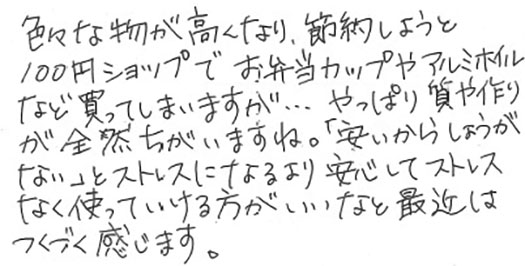 色々な物が高くなり、節約しようと
100円ショップで お弁当カップやアルミホイル
など買ってしまいますが… やっぱり質や作り
が全然ちがいますね。「安いからしょうが
ない」とストレスになるより安心してストレス
なく使っていける方がいいなと最近は
つくづく感じます。